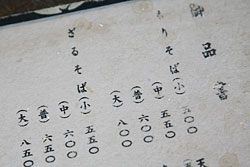 御品書
りそば(小) 五〇〇
(中) 五五〇
(普) 六〇〇
(大) 八〇〇
ざるそば(小) 五五〇
(中) 六〇〇
(普) 六五〇
(大) 八五〇